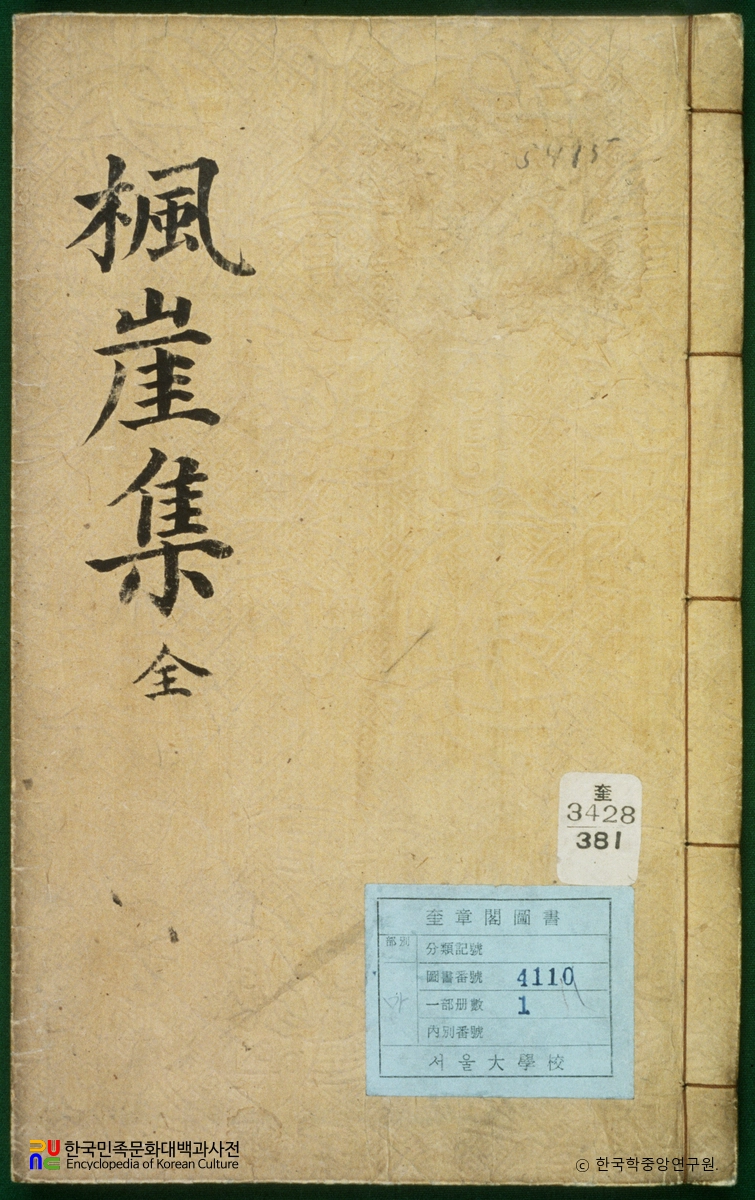 楓崖集 全
5415
奎
3428
381
奎章閣圖書
部別
分類記號
圖書番號 4110
一部冊數 1
內別番號
서울大學校
한국민족문화대백과사전
Encyclopedia of Korean Culture
ⓒ 한국학중앙연구원.